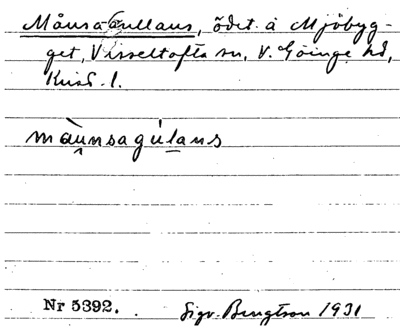 Månsa Gullans, ödet. å Mjöbyg-
get, Visseltofta sn, V. Göinge hd,
Krist. l.
màu̯nsagúlans
Nr 5392. Sigv. Bengtson 1931